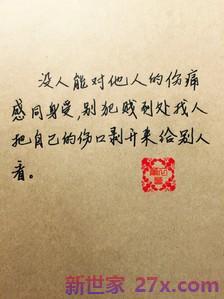 没人能对他人的伤痛
感同身受，别犯贱到处找人
把自己的伤口剥开来给别人
看。
新世家 27x.com